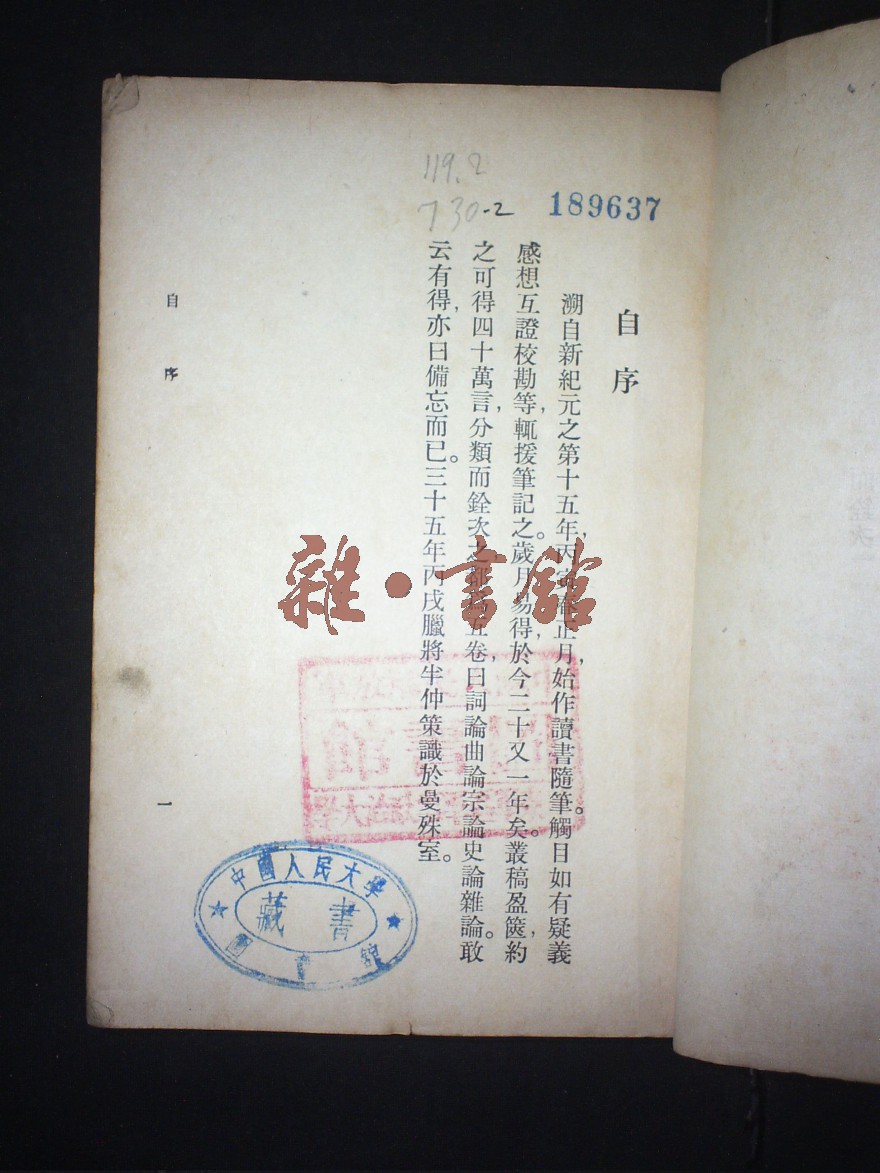 119.2
730-2
189637
自序
溯自新紀元之第十五年,丙寅春正月,始作讀書隨筆。觸目如有疑義
感想互證校勘等,輒援筆記之。歲月易得,於今二十又一年矣。叢稿盈篋,約
之可得四十萬言,分類而銓次之,都爲五卷,曰詞論曲論宗論史論雜論。敢
云有得,亦曰備忘而已。三十五年丙戌臘將半仲策識於曼殊室。
自序
一
雜·書館
中國人民大學
藏書
圖書館